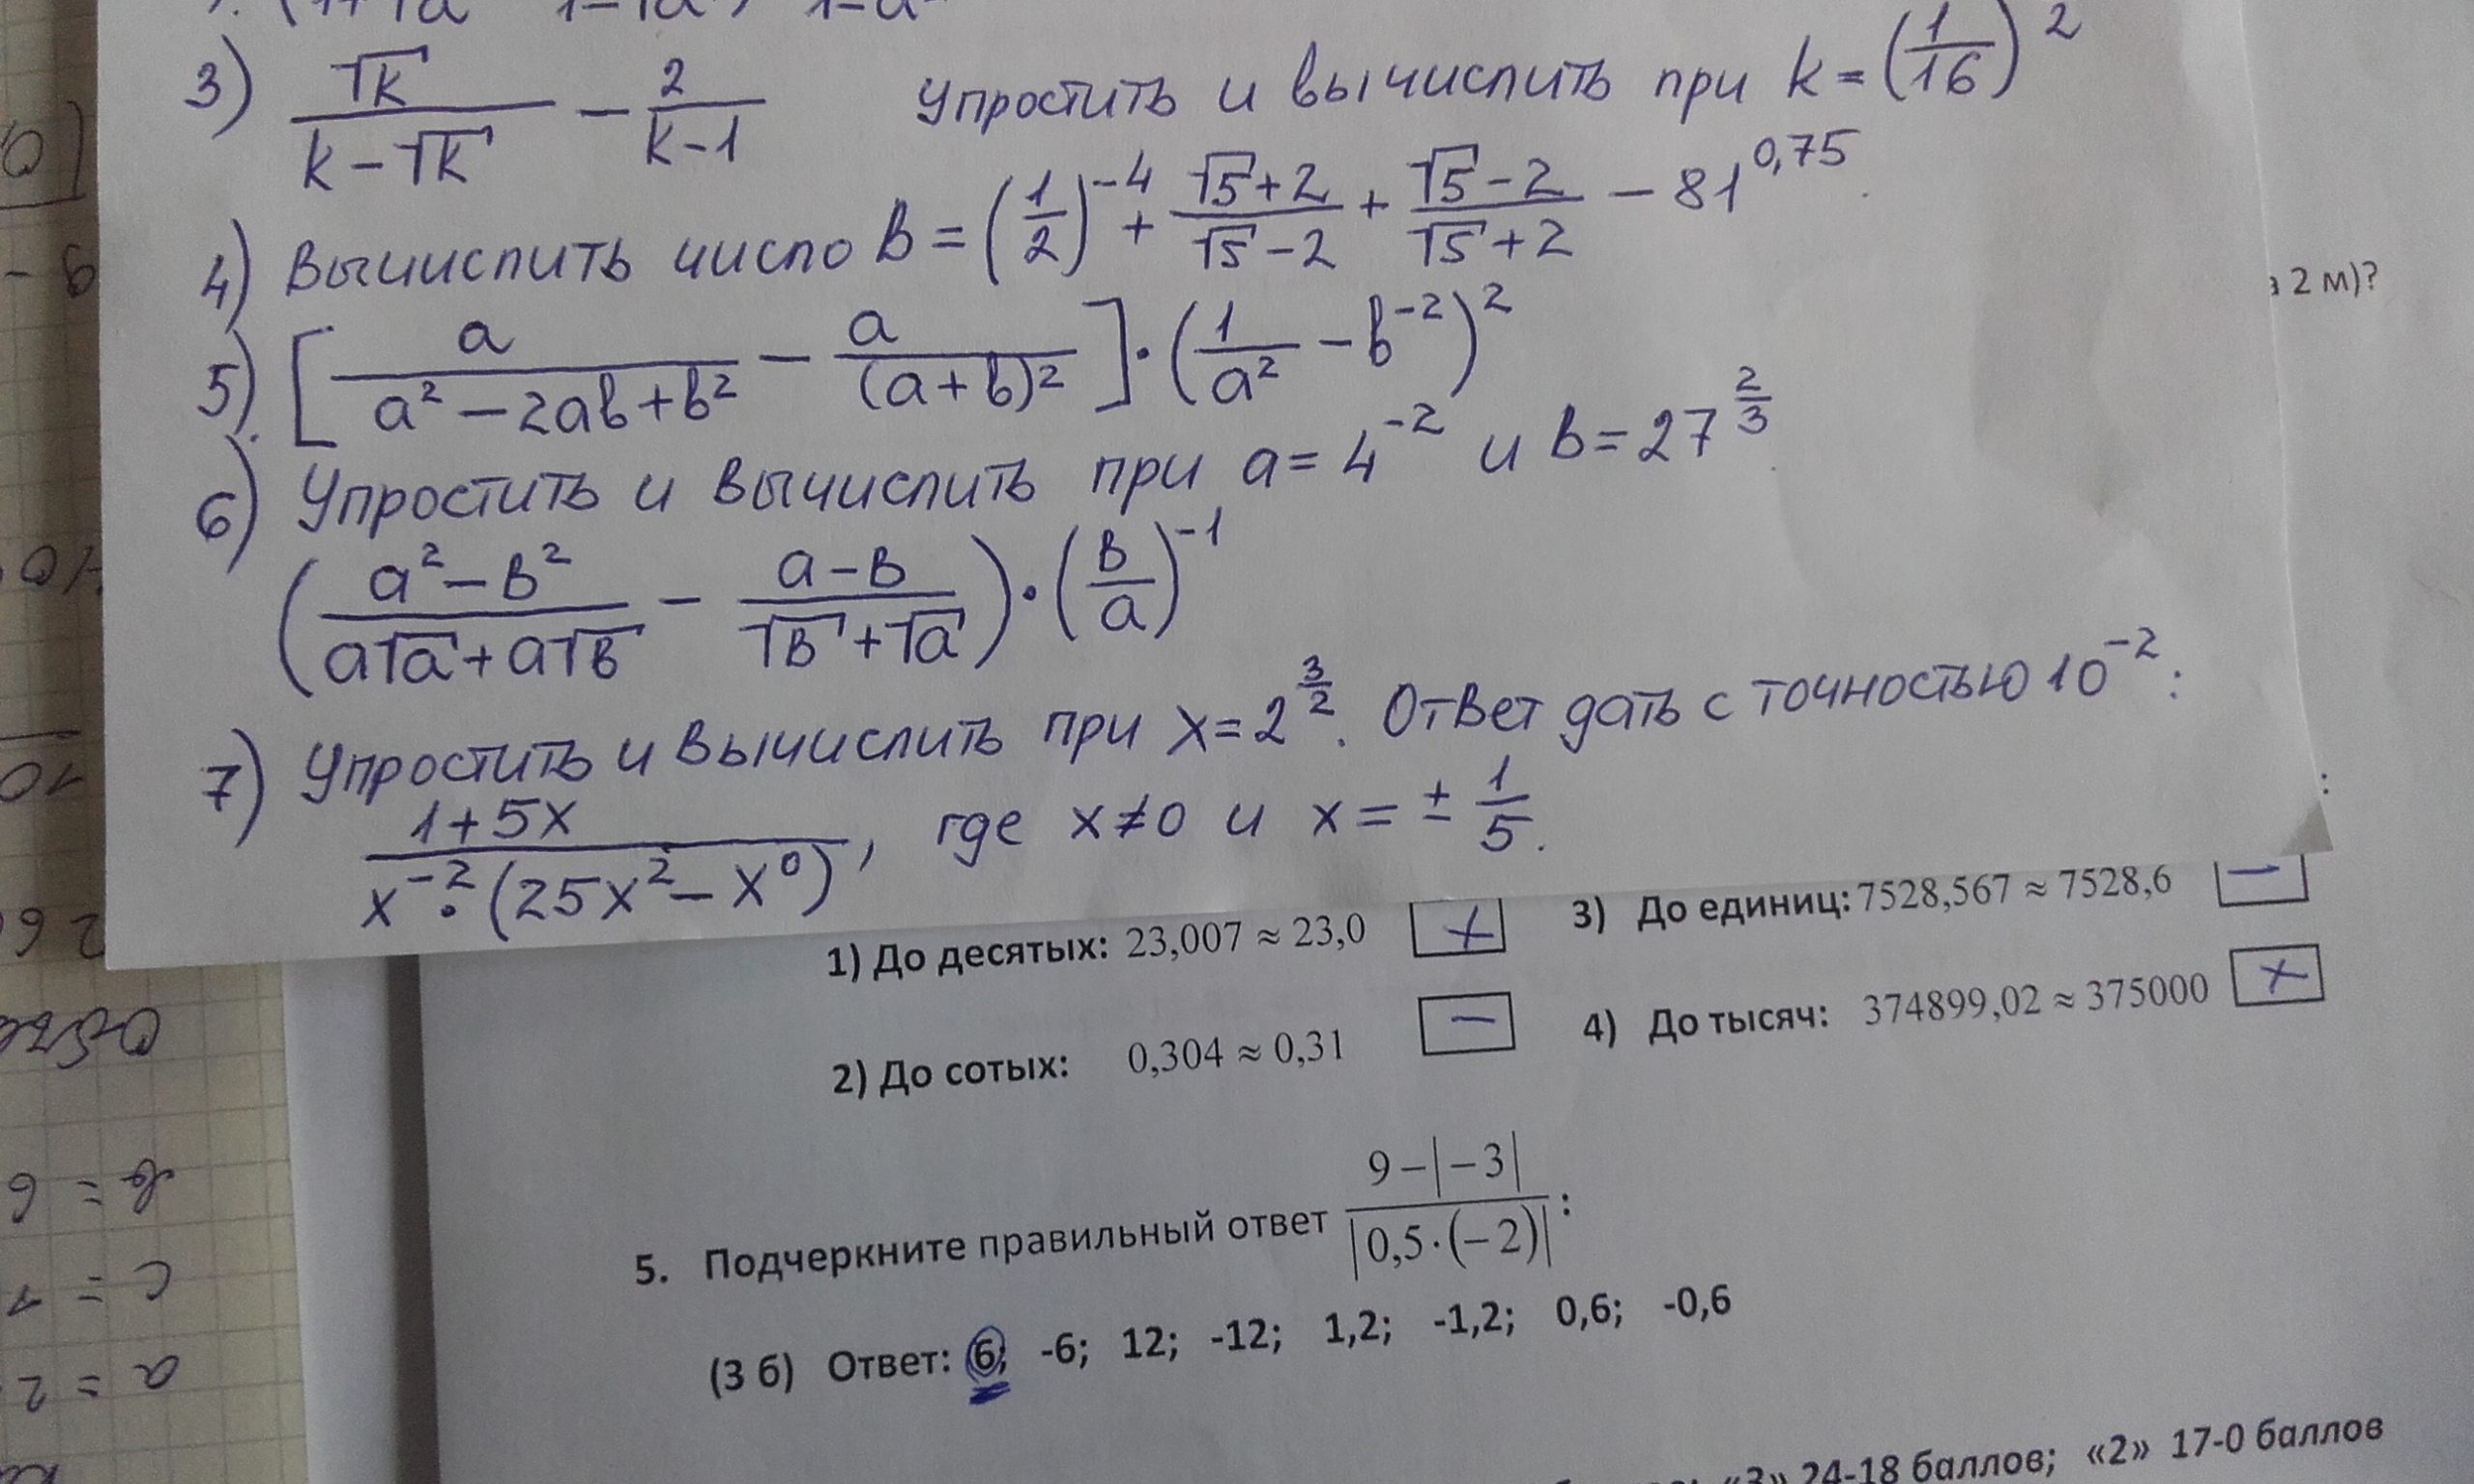 3) √k/(k-√k) - 2/(k-1) упростить и вычислить при k=(1/16)^2
4) Вычислить число B=(1/2)^-4 + (√5+2)/(√5-2) + (√5-2)/(√5+2) - 81^0,75
5) [a/(a²-2ab+b²) - a/(a+b)²]·(1/a² - b^-2)²
6) Упростить и вычислить при a=4^-2 и b=27^(2/3)
((a²-b²)/(a√a+a√b) - (a-b)/(√b+√a))·(b/a)^-1
7) Упростить и вычислить при x=2^(3/2). Ответ дать с точностью 10^-2:
(1+5x)/(x^-2·(25x²-x⁰)), где x≠0 и x=±1/5.
2 м)?
1) До десятых: 23,007 ≈ 23,0 +
3) До единиц: 7528,567 ≈ 7528,6 −
2) До сотых: 0,304 ≈ 0,31 −
4) До тысяч: 374899,02 ≈ 375000 +
5. Подчеркните правильный ответ (9-|-3|)/|0,5·(-2)|:
(3 б) Ответ: 6; -6; 12; -12; 1,2; -1,2; 0,6; -0,6
«3» 24-18 баллов; «2» 17-0 баллов
в = 6
c = 1
a = 2